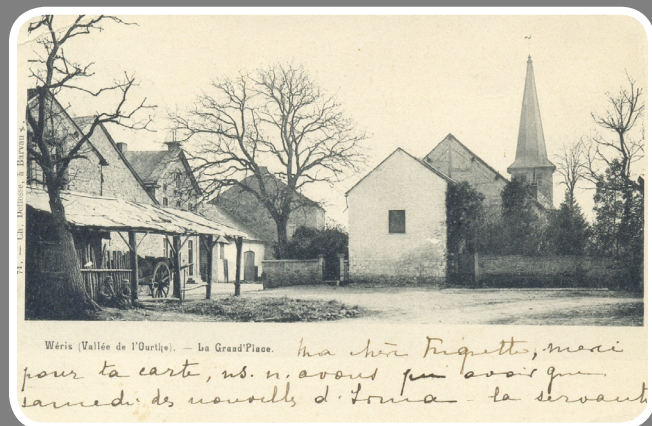 71. — Ch. Delfosse, à Barvaux s.
Wéris (Vallée de l'Ourthe). — La Grand'Place.
Ma chère Friquette, merci
pour ta carte, ns. n. avons pu avoir que
samedi des nouvelles d. Irma – la servante